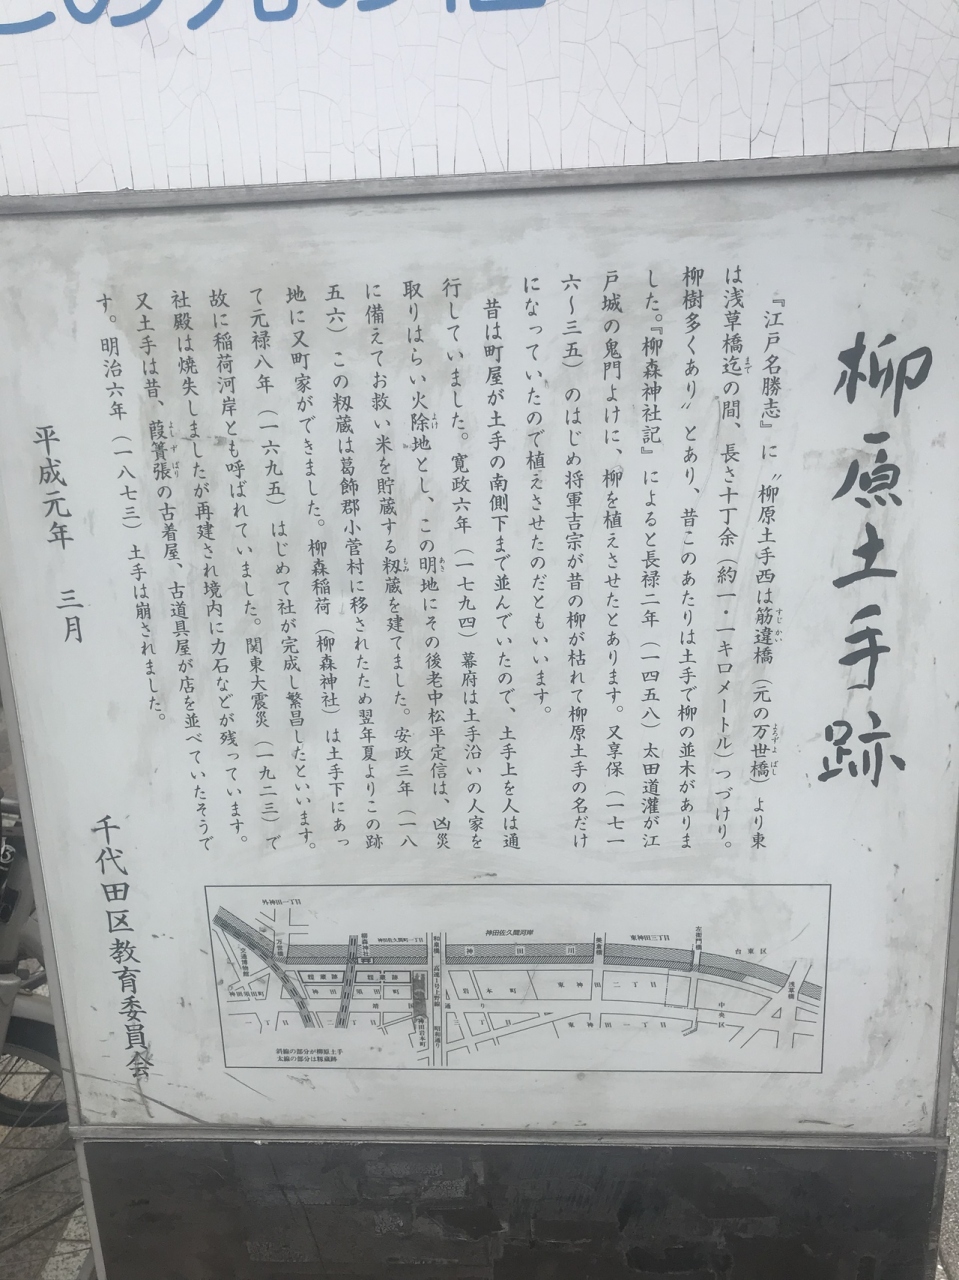 柳原土手跡
『江戸名勝志』に〝柳原土手西は筋違橋（元の万世橋）より東
は浅草橋迄の間、長さ十丁余（約一・一キロメートル）つづけり。
柳樹多くあり〟とあり、昔このあたりは土手で柳の並木がありま
した。『柳森神社記』によると長禄二年（一四五八）太田道灌が江
戸城の鬼門よけに、柳を植えさせたとあります。又享保（一七一
六〜三五）のはじめ将軍吉宗が昔の柳が枯れて柳原土手の名だけ
になっていたので植えさせたのだともいいます。
昔は町屋が土手の南側下まで並んでいたので、土手上を人は通
行していました。寛政六年（一七九四）幕府は土手沿いの人家を
取りはらい火除地とし、この明地にその後老中松平定信は、凶災
に備えてお救い米を貯蔵する籾蔵を建てました。安政三年（一八
五六）この籾蔵は葛飾郡小菅村に移されたため翌年夏よりこの跡
地に又町家ができました。柳森稲荷（柳森神社）は土手下にあっ
て元禄八年（一六九五）はじめて社が完成し繁昌したといいます。
故に稲荷河岸とも呼ばれていました。関東大震災（一九二三）で
社殿は焼失しましたが再建され境内に力石などが残っています。
又土手は昔、葭簀張の古着屋、古道具屋が店を並べていたそうで
す。明治六年（一八七三）土手は崩されました。
平成元年　三月
千代田区教育委員会
外神田一丁目
万世橋
交通博物館
柳森神社
神田佐久間町一丁目
和泉橋
神田佐久間河岸
神田川
美倉橋
東神田三丁目
左衛門橋
台東区
浅草橋
籾蔵跡
籾蔵跡
神田須田町
神田須田町
一丁目
二丁目
靖国通り
神田岩本町
高速1号上野線
昭和通り
岩本町
三丁目
東神田二丁目
東神田一丁目
中央区
斜線の部分が柳原土手
太線の部分は籾蔵跡